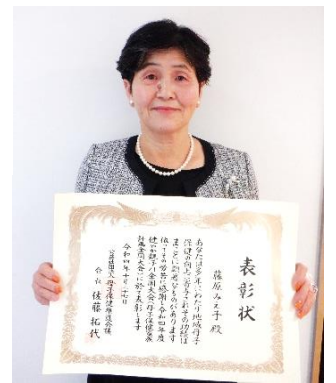 表彰状
藤原みえ子 殿
あなたは多年にわたり地域母子
保健の向上に寄与されその功績は
まことに顕著なものがあります
よってその労苦に感謝し令和四年度
健やか親子21全国大会(母子保健家族
計画全国大会)に於て表彰します
令和四年十月二十七日
公益社団法人 母子保健推進会議
会長 佐藤拓代